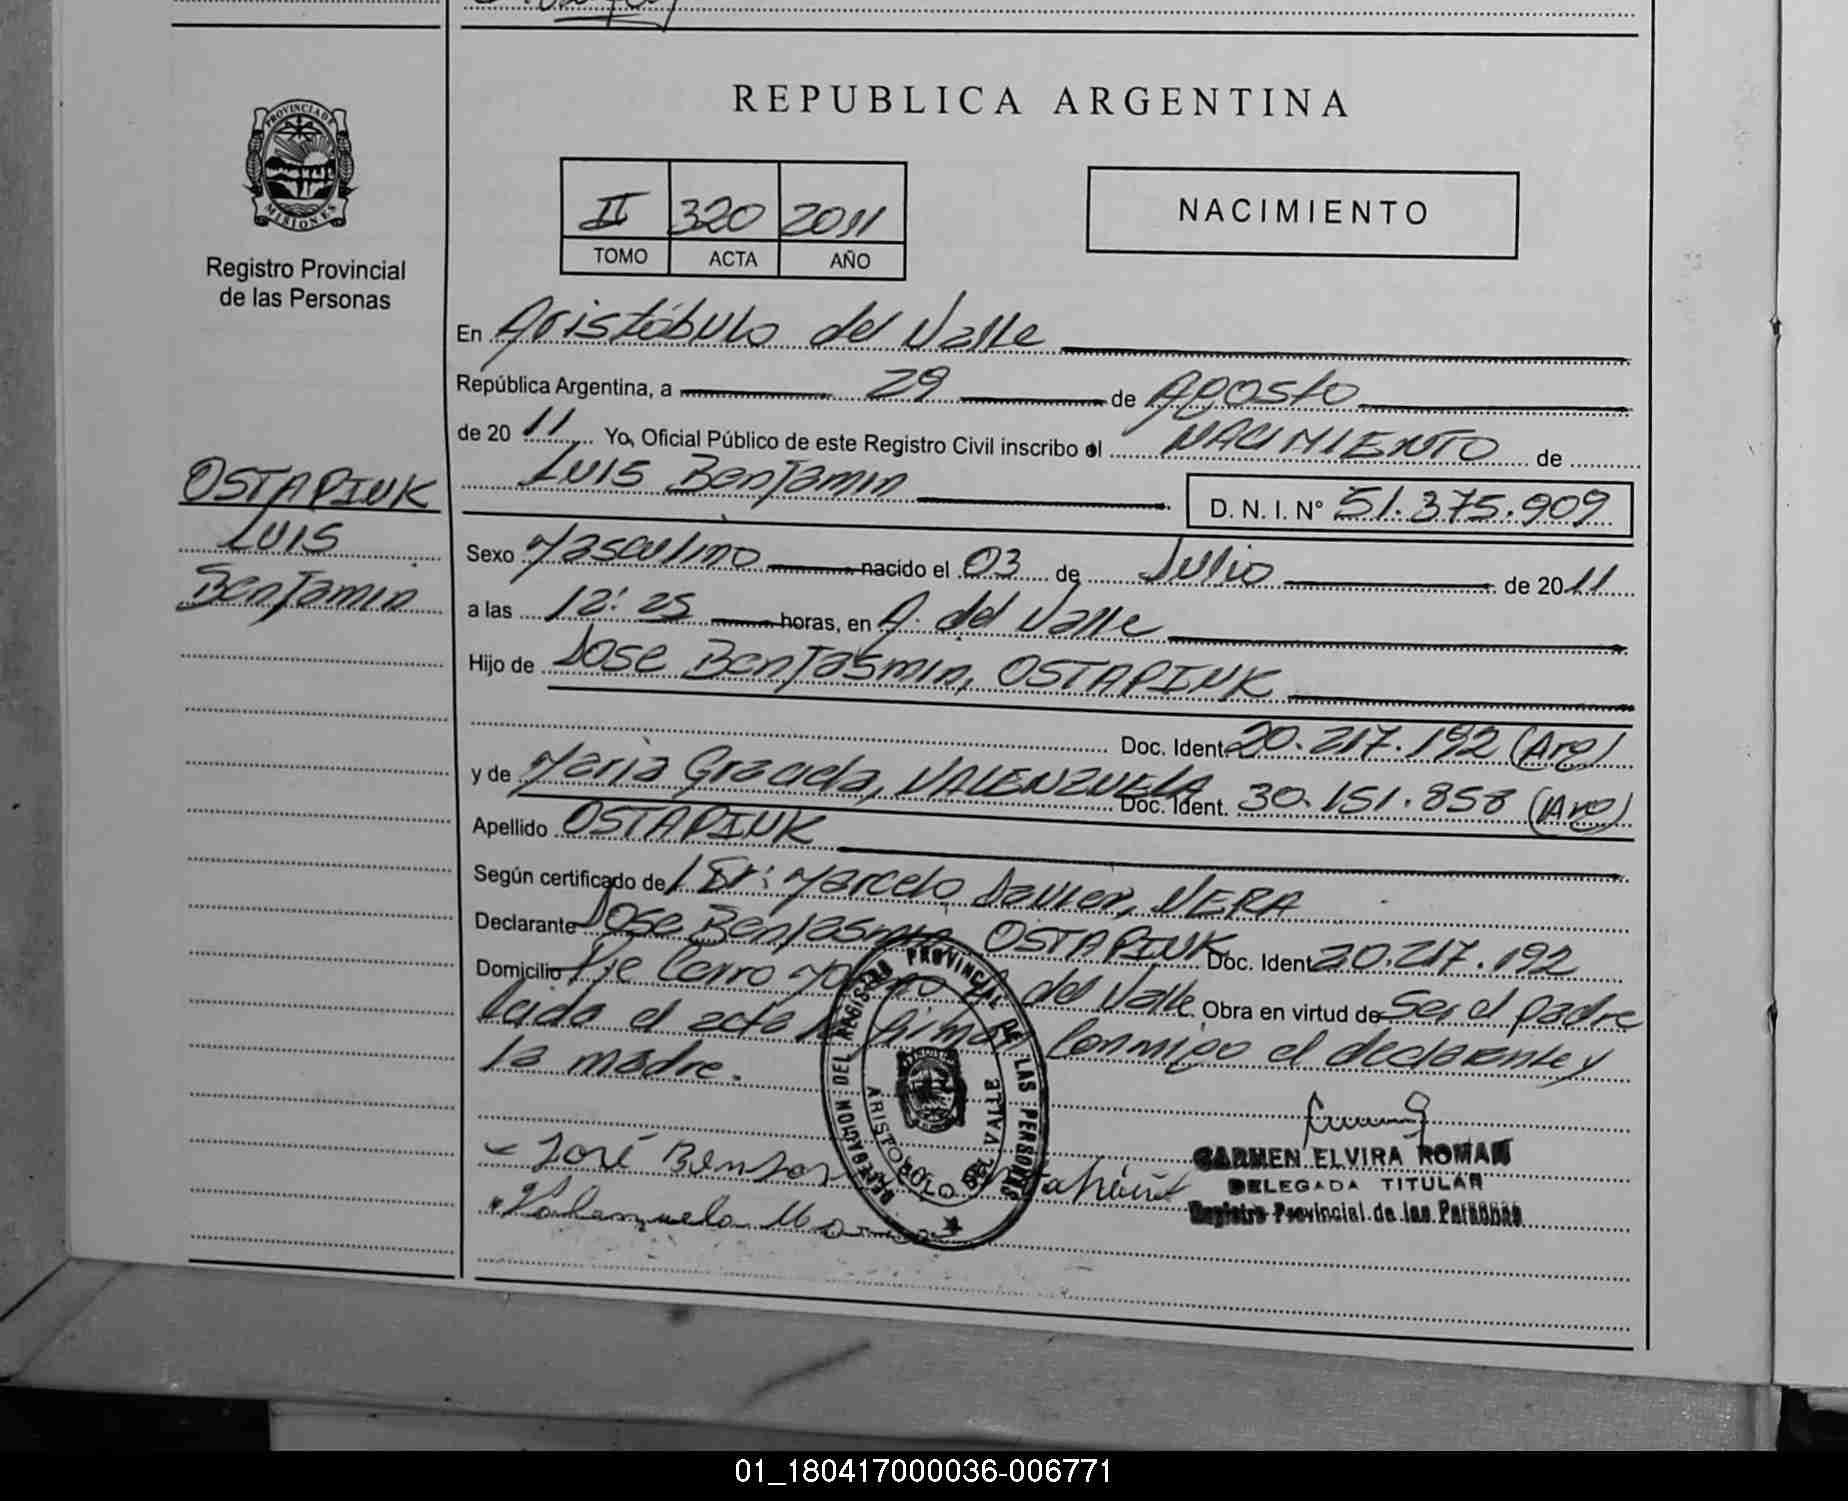 REPUBLICA ARGENTINA
PROVINCIA DE
MISIONES
Registro Provincial
de las Personas
II 320 2011
TOMO ACTA AÑO
NACIMIENTO
En Aristóbulo del Valle
República Argentina, a 29 de Agosto
de 20 11 Yo, Oficial Público de este Registro Civil inscribo el NACIMIENTO de
LUIS Benjamin D. N. I. N° 51.375.909
OSTAPIUK
LUIS
Benjamin
Sexo Masculino nacido el 03 de Julio de 2011
a las 12:25 horas, en A. del Valle
Hijo de Jose Benjasmin, OSTAPIUK
Doc. Ident. 20.217.192 (Arg)
y de Maria Graciela, VALENZUELA Doc. Ident. 30.151.858 (Arg)
Apellido OSTAPIUK
Según certificado de Marcelo Javier, VERA
Declarante Jose Benjasmin OSTAPIUK Doc. Ident. 20.217.192
Domicilio Pje Cerro A del Valle Obra en virtud de Ser el padre
leida el acta la firman conmigo el declarante y
la madre.
DELEGACION DEL REGISTRO PROVINCIAL DE LAS PERSONAS
ARISTOBULO DEL VALLE
José Benjas
Valenzuela Maria
CARMEN ELVIRA ROMAN
DELEGADA TITULAR
Registro Provincial de las Personas
01_180417000036-006771